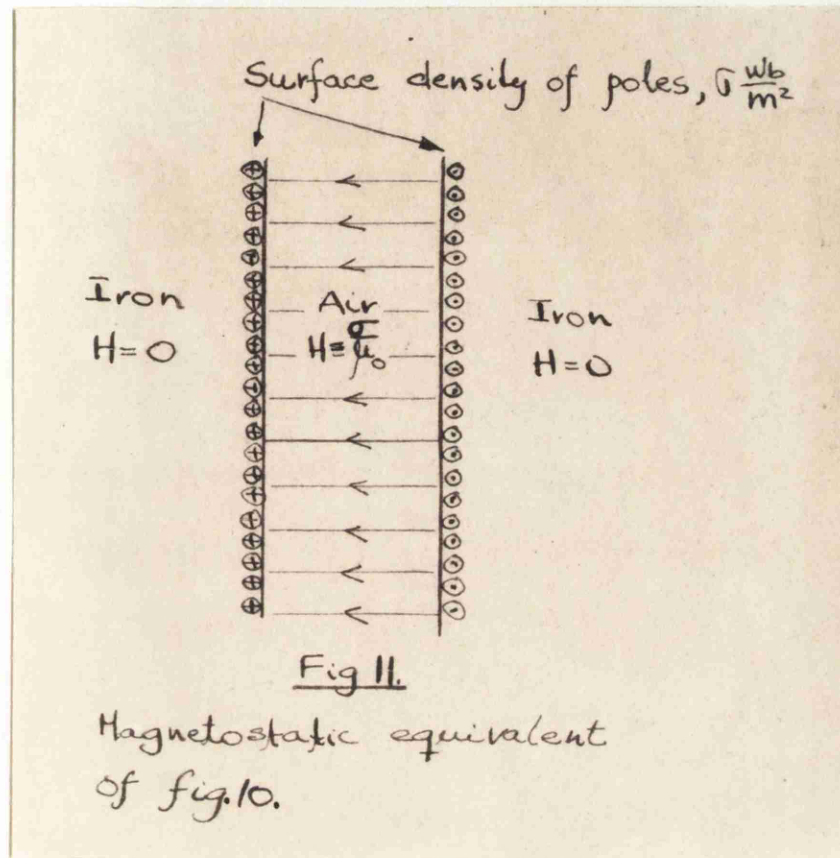 Surface density of poles, σ Wb/m²
Iron
H=0
Air
H=σ/μ₀
Iron
H=0
Fig 11.
Magnetostatic equivalent
of fig.10.